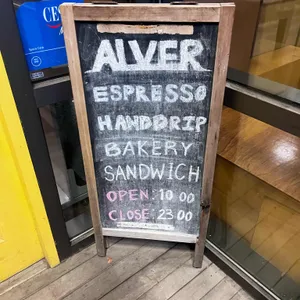 ALVER
ESPRESSO
HANDDRIP
BAKERY
SANDWICH
OPEN : 10 00
CLOSE : 23 00